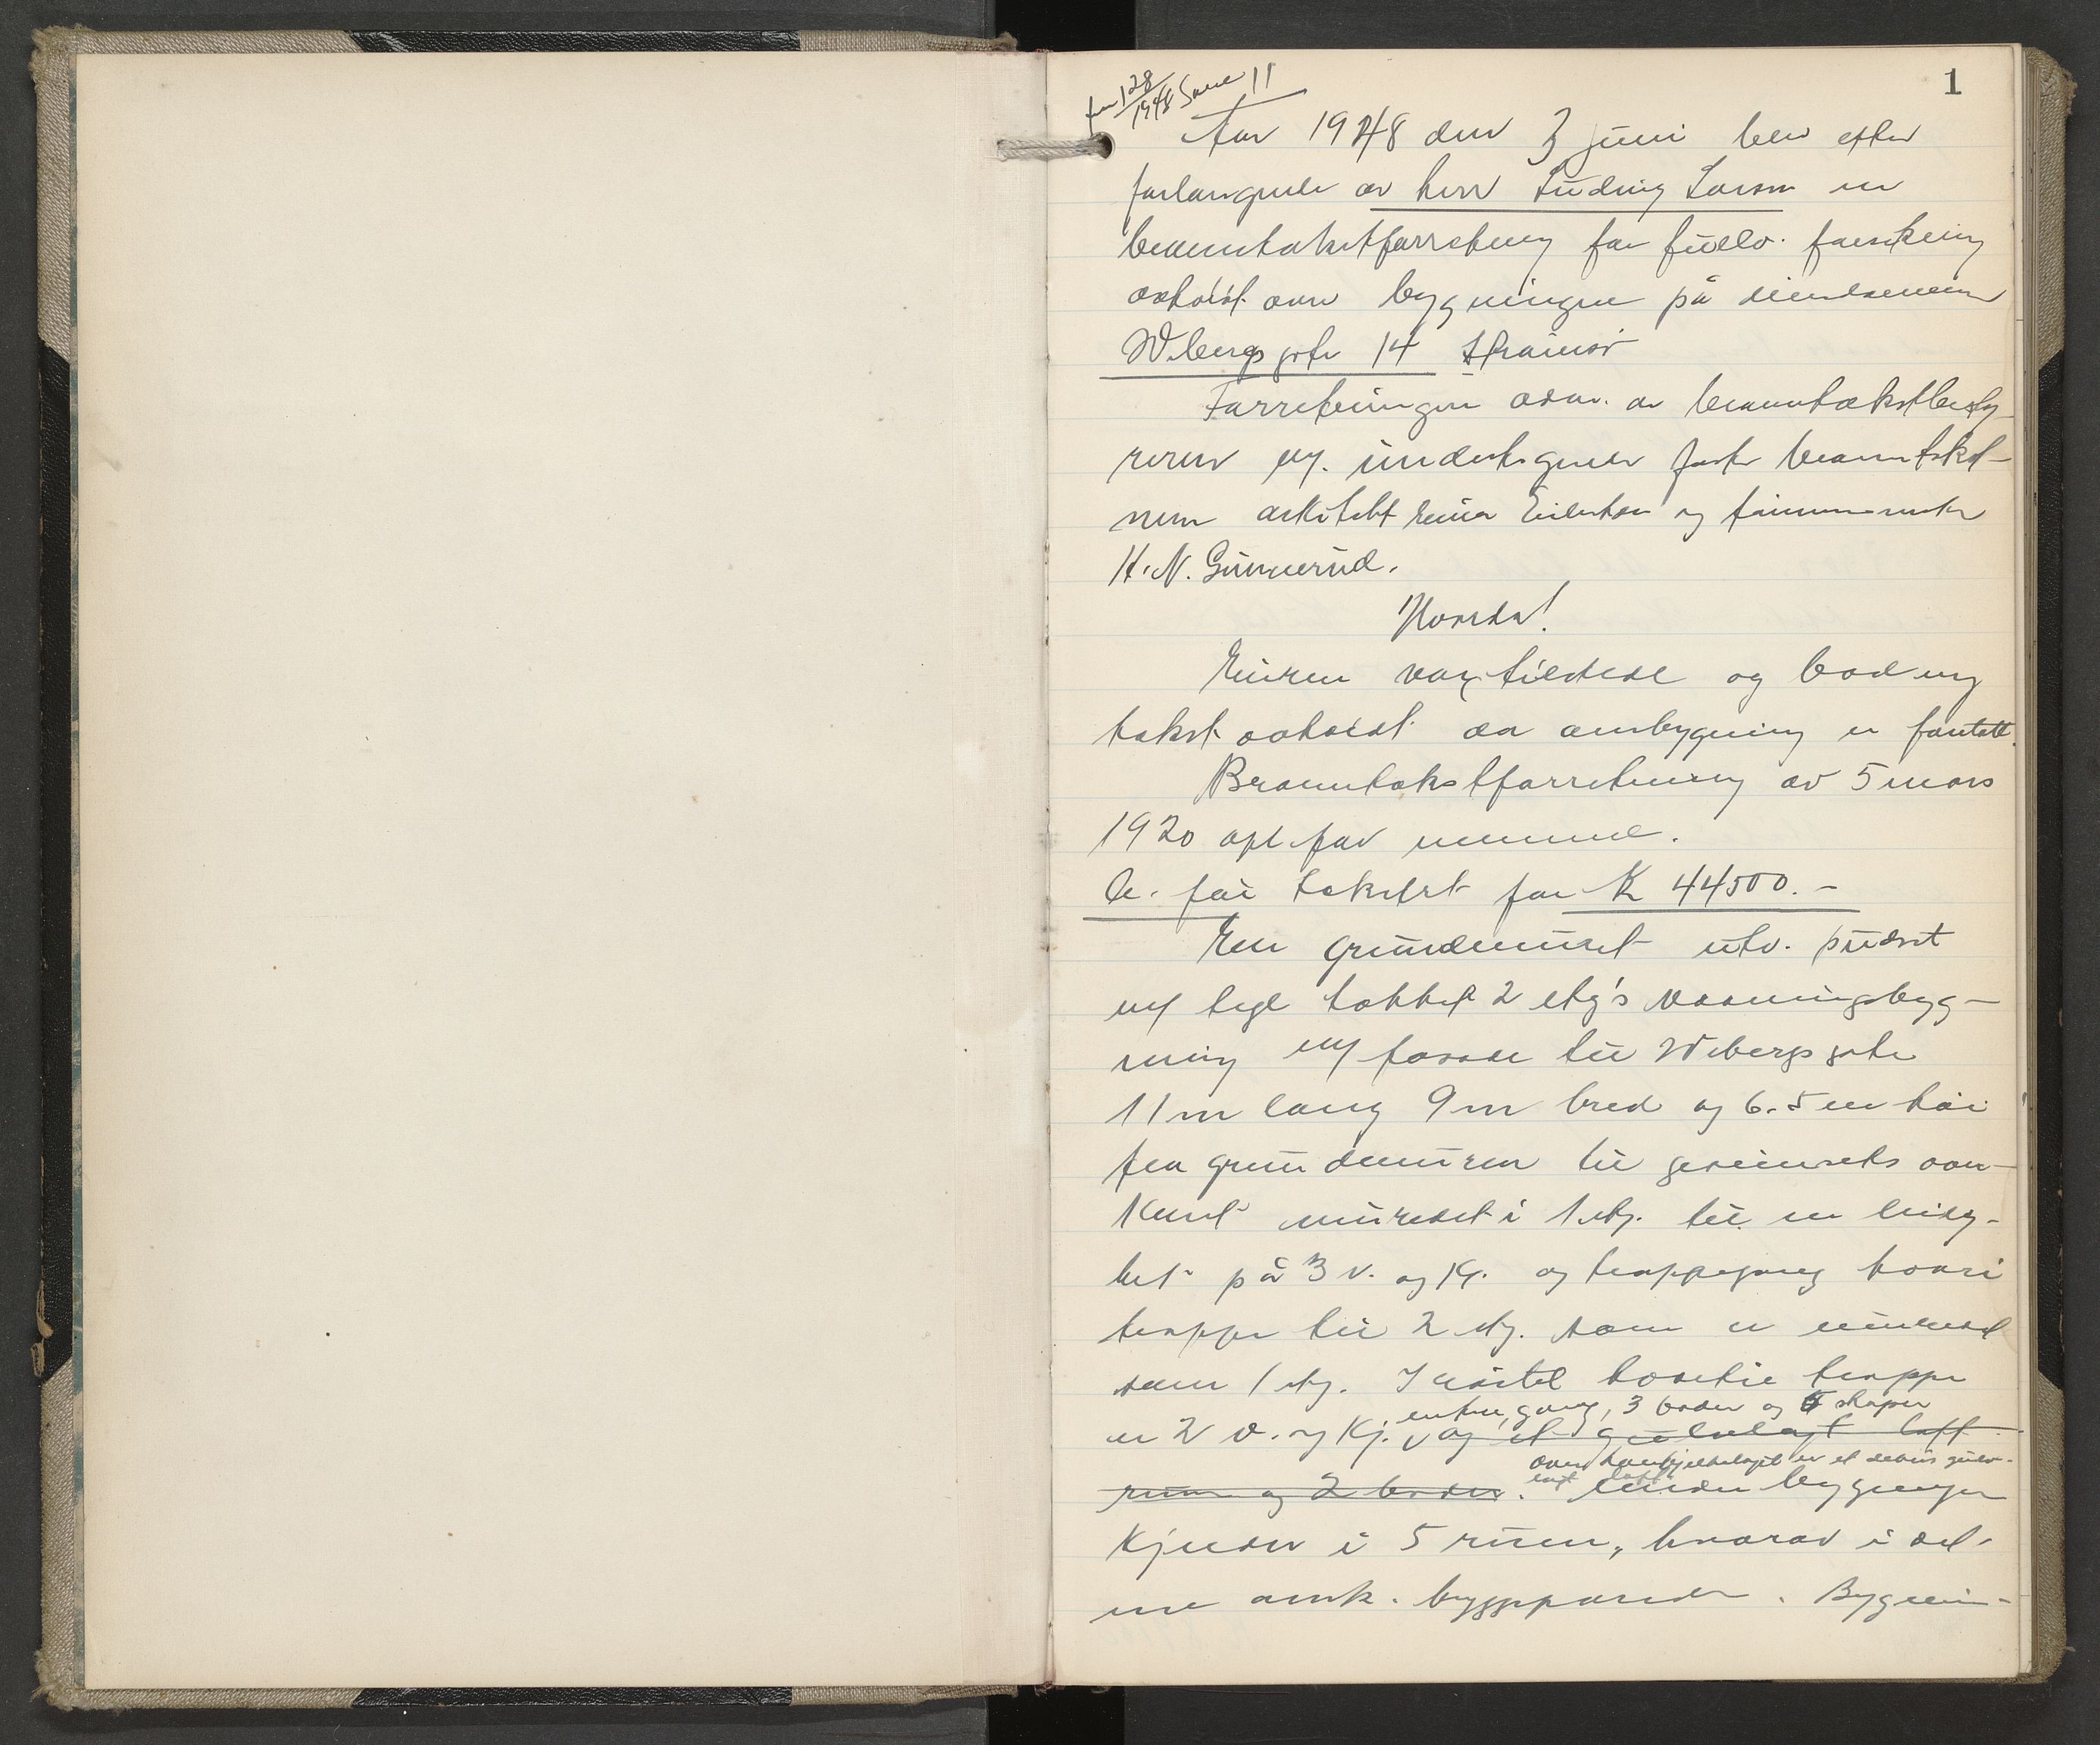 1
128/1948 Sone 11
Aar 1948 den 3 juni blev efter
forlangende av herr Ludvig Larsen en
branntakstforretning for fullv. forsikring
avholdt over bygningen på eiendommen
Wibergs gate 14 Strømsø
Forretningen adm. av branntakstbesty-
reren og undertegnede faste branntakst-
menn arkitekt Einar Eilertsen og tømmermester
H. N. Gunnerud.
Hvorda!
Eieren var tilstede og bad ny
takst avholdt da ombygning er foretatt.
Branntakstforretning av 5 mars
1920 opl. for
a. før takstert for Kr 44500.-
En grundmuret utv. pudset
m/ tegl tækket 2 etg's vaaningsbyg-
ning m/ fasade til Wibergs gate
11 m lang 9 m bred og 6.5 m høi
fra grundmuren til gesimsets over-
kant innredet i 1 etg. til en leilig-
het på 3 v. og kj. og trappegang hvori
trappe til 2 etg. som er innredet
som 1 etg. I kvistet hvortil trappe
er 2 v. og kj. og et gulvlagt loft
entre, gang, 3 boder og skaper
rum og 2 boder. Under bygningen
over hanebjelkelaget er et delvis gulv-
lagt loft
kjelder i 5 rum, hvorav i det
ene amk. bryggepanne. Bygnin-